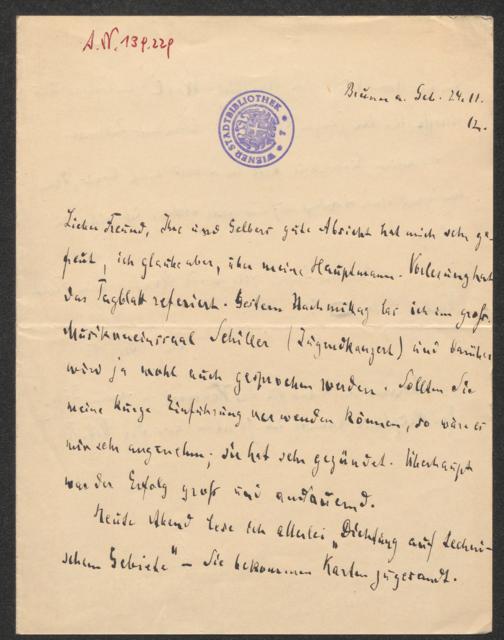 A.N. 139.229
WIENER STADTBIBLIOTHEK
Brunn a. Geb. 24. 11.
12.
Lieber Freund, Ihre und Gelbers gute Absicht hat mich sehr ge-
freut, ich glaube aber, über meine Hauptmann-Vorlesung hat
das Tagblatt referiert. Gestern Nachmittag las ich im groß.
Musikvereinssaal Schiller (Jugendkonzert) und darüber
wird ja wohl auch gesprochen werden. Sollten Sie
meine kurze Einführung verwenden können, so wäre es
mir sehr angenehm; sie hat sehr gezündet. Überhaupt
war der Erfolg groß und andauernd.
Heute Abend lese ich allerlei „Dichtung auf techni-
schem Gebiete" – Sie bekommen Karten zugesandt.